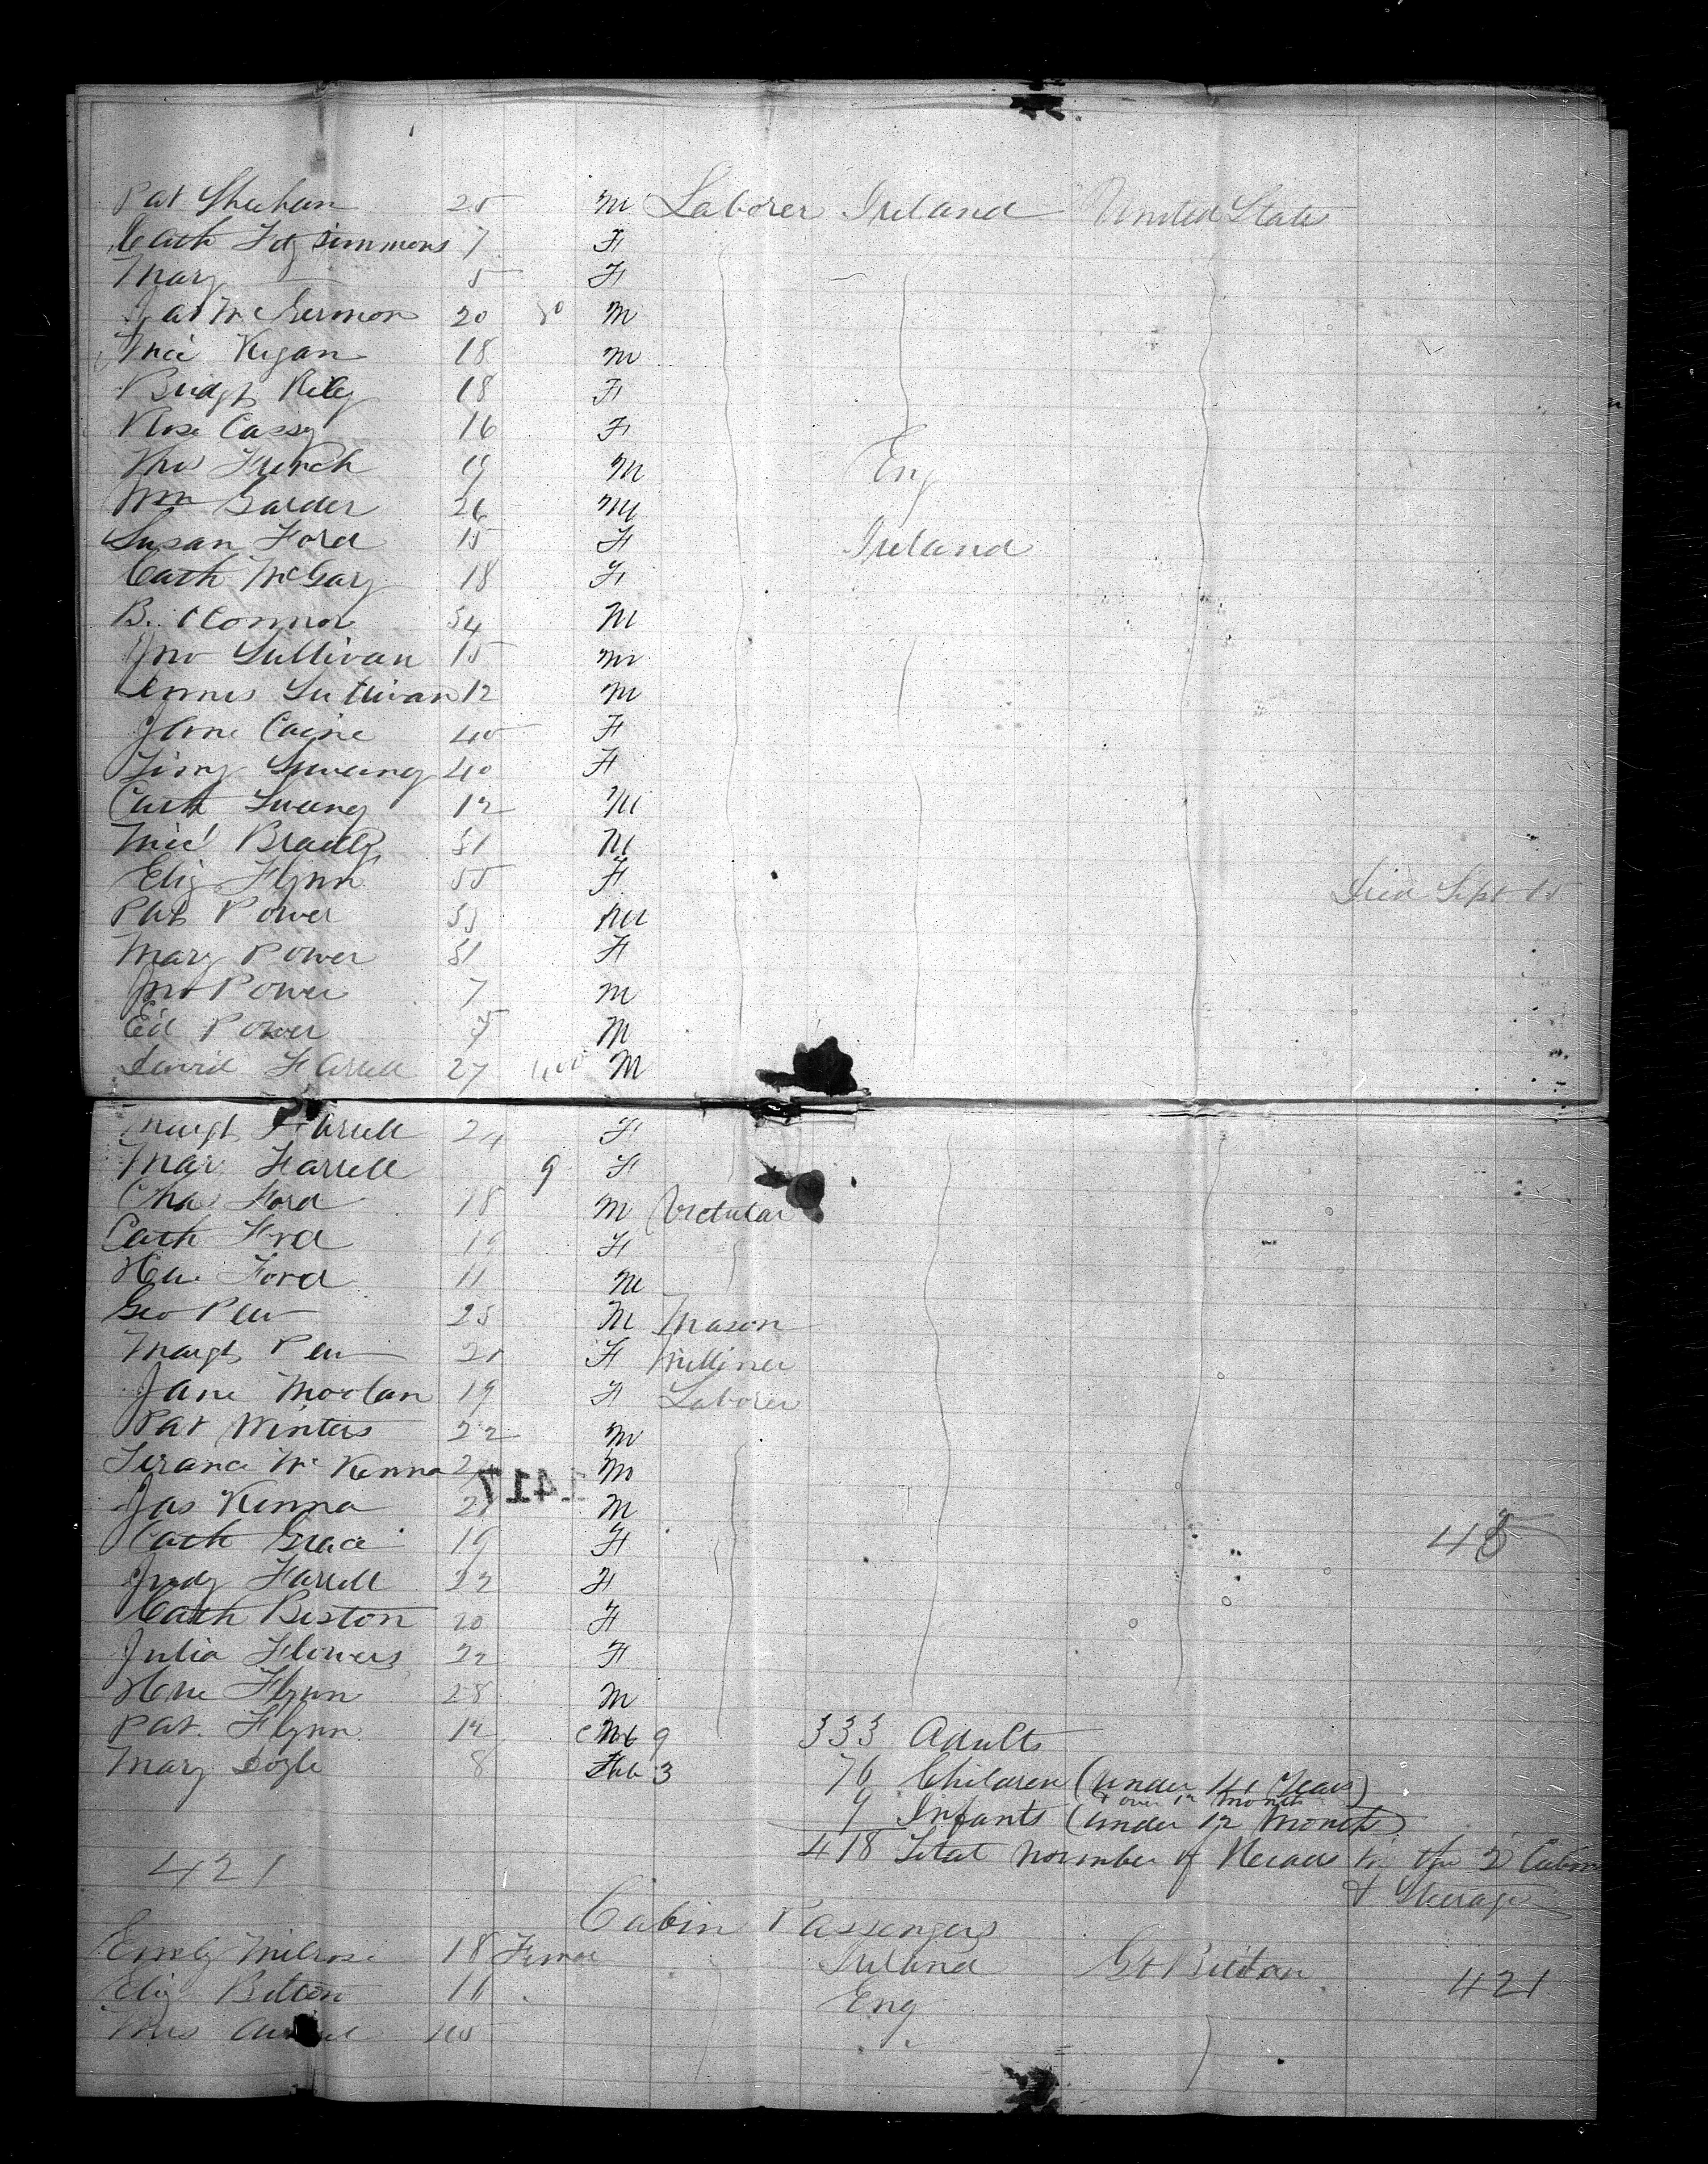 Pat Sheehan 25 M Laborer Ireland United States
Cath Fitzsimmons 7 F
Mary — 5 F
Jas McGermon 20 M
Mic Kigan 18 M
Bridgt Riley 18 F
Rose Cassy 16 F
Thos French 19 M Eng
Wm Garder 26 M
Susan Ford 15 F Ireland
Cath McGary 18 F
B. OConnor 34 M
Jno Sullivan 15 M
Dennis Sullivan 12 M
Jane Caine 40 F
40 F
Cath 12 M
Mic Brady 31 M
Eliz Flynn 55 F Died Sept 15
Pat Power 33 M
Mary Power 31 F
Jno Power 7 M
Ed Power 5 M
David Farrell 27 M
Margt Farrell 24 F
Mary Farrell 9 F
Chas Ford 18 M Victular
Cath Ford 19 F
Ford 11 M
Geo Pew 25 M Mason
Margt Pew 21 F Milliner
Jane Moolan 19 F Laborer
Pat Winters 22 M
McKenna M
1417
Jas Kenna M
Cath Grace 19 F
45
Judy Farrell 22 F
Cath Beston 20 F
Julia Flowers 22 F
Flynn 28 M
Pat. Flynn 12 M 9 333 Adults
Mary Doyle 8 3 76 Children (under 14 Years)
& over 12 Month
9 Infants (under 12 Month)
418 Total Number of in the 2 Cabin
& Steerage
421
Cabin Passengers
Emely Milrose 18 Ireland Gt Britian
Eliz Bitton 11 Eng 421
Mrs